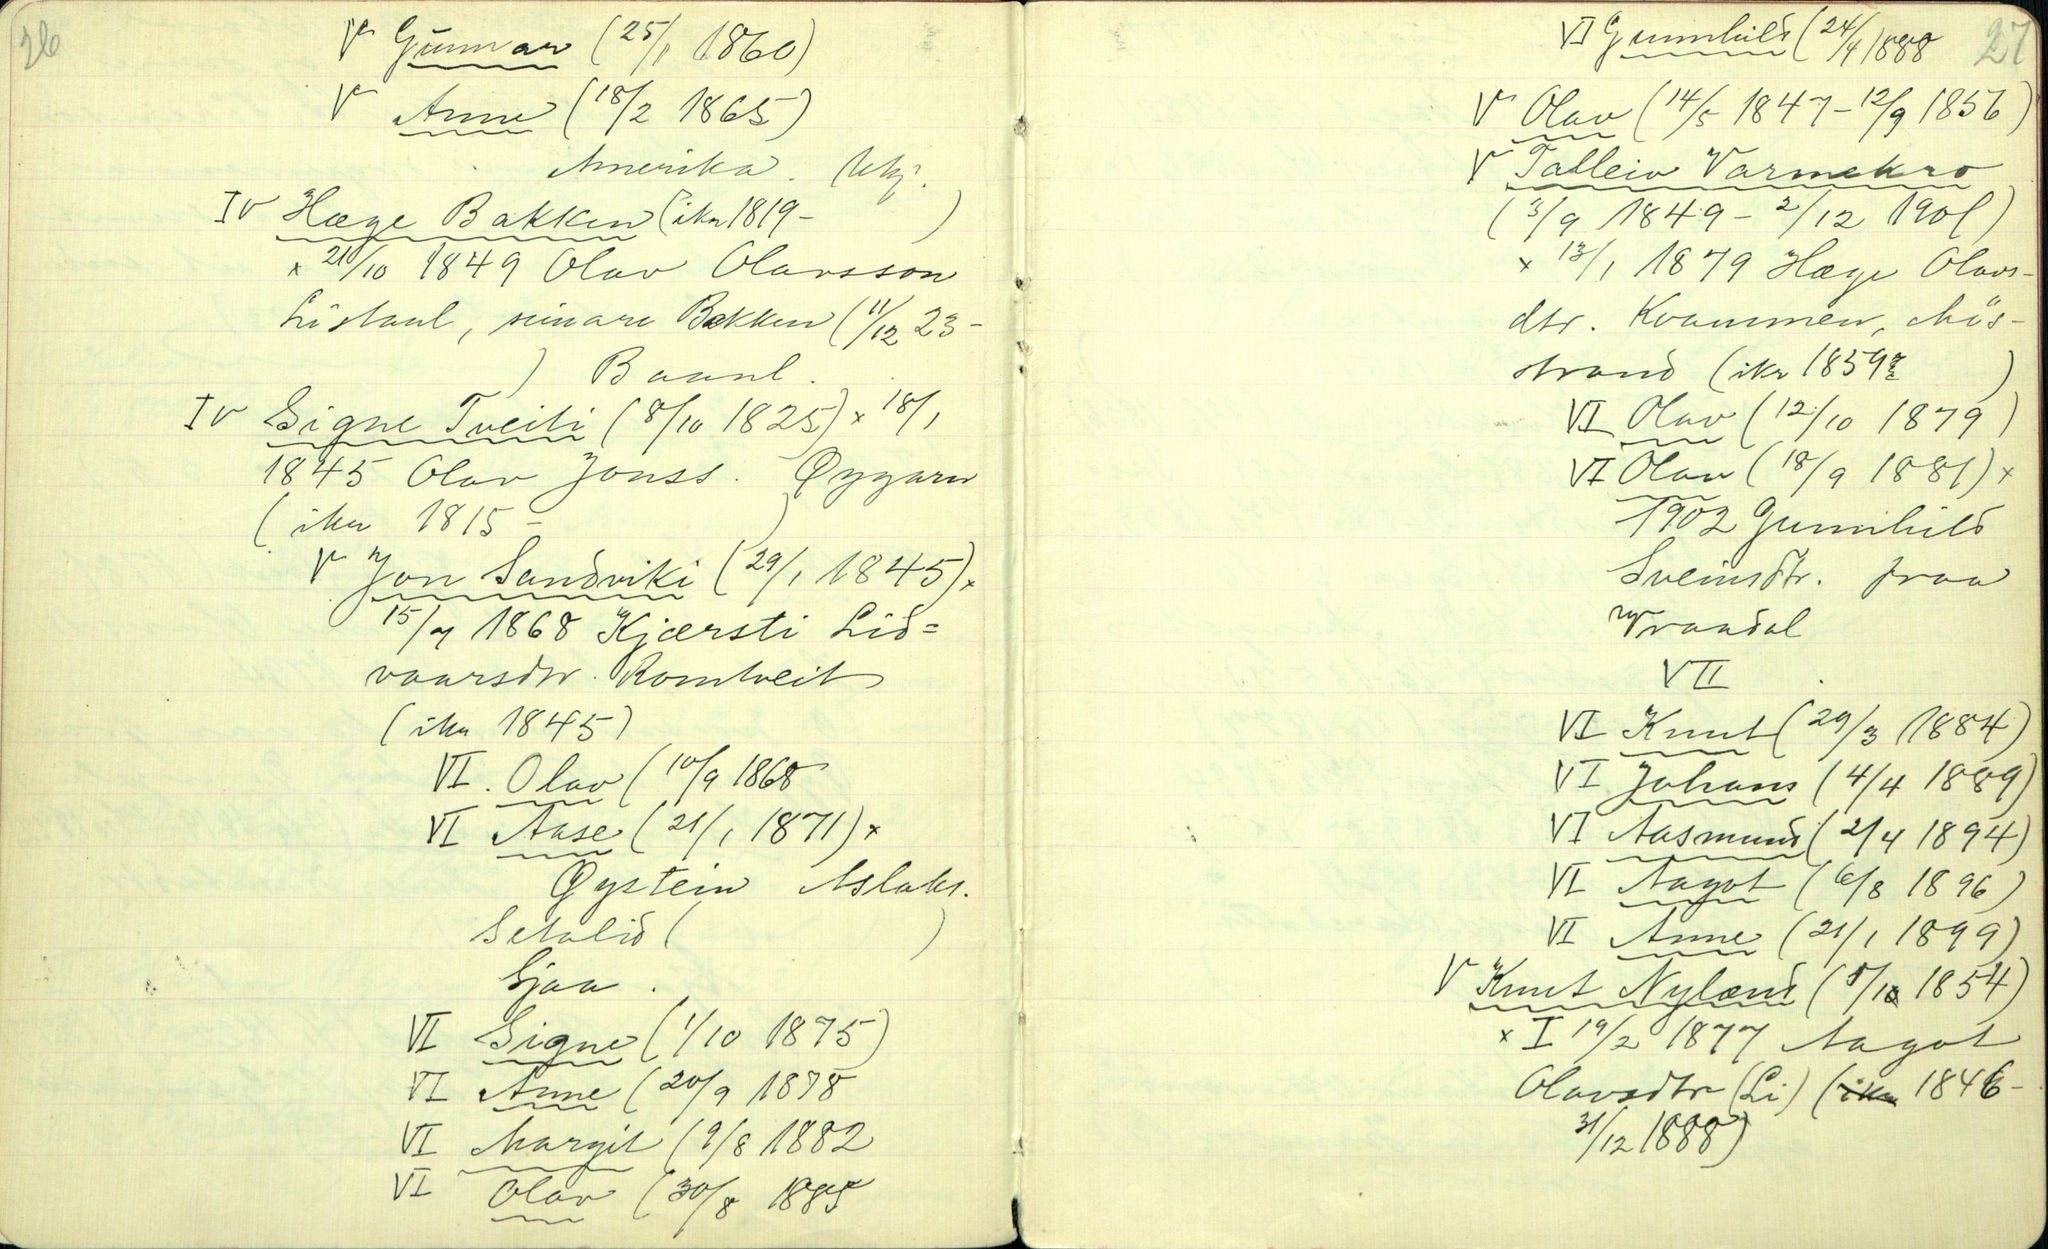 26
V Gunnar (25/1 1860)
V Anne (18/2 1865)
Amerika.
IV Hæge Bakken (ikr 1819- )
× 21/10 1849 Olav Olavsson
Listaul, seinare Bakken (11/12 23-
) Baanl.
IV Signe Tveiti (8/10 1825) × 18/1
1845 Olav Jonss. Øygarn
(ikr 1815- )
V Jon Sandviki (29/1 1845) ×
15/7 1868 Kjærsti Lid=
vaarsdtr. Romtveit
(ikr 1845)
VI. Olav (10/9 1868
VI Aase (21/1 1871) ×
Øystein Aslaks.
Setalid ( )
Gjaa.
VI Signe (1/10 1875)
VI Anne (20/9 1878
VI Margit (9/8 1882
VI Olav (30/8 1885
27
VI Gunnhild (24/4 1888
V Olav (14/5 1847-12/9 1856)
V Talleiv Varmekro
(3/9 1849 - 2/12 1901)
× 13/1 1879 Hæge Olavs-
dtr. Kvammen, Mös-
strand (ikr 1859 )
VI Olav (12/10 1879)
VI Olav (18/9 1881) ×
1902 Gunnhild
Sveinsdtr. fraa
Vraadal
VII
VI Knut (29/3 1884)
VI Johans (4/4 1889)
VI Aasmund (2/4 1894)
VI Aagot (6/8 1896)
VI Anne (21/1 1899)
V Knut Nyland ( 1854)
× I 19/2 1877 Aagot
Olavsdtr (Li) (ikr 1846-
31/12 1888)